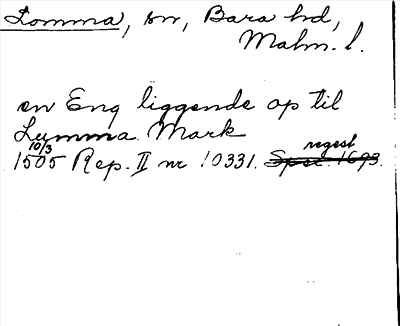 Lomma, sn, Bara hd,
Malm. l.
en Eng liggende op til
Lymma Mark
10/3
1505 Rep. II nr 10331. regest
Spec. 1693.